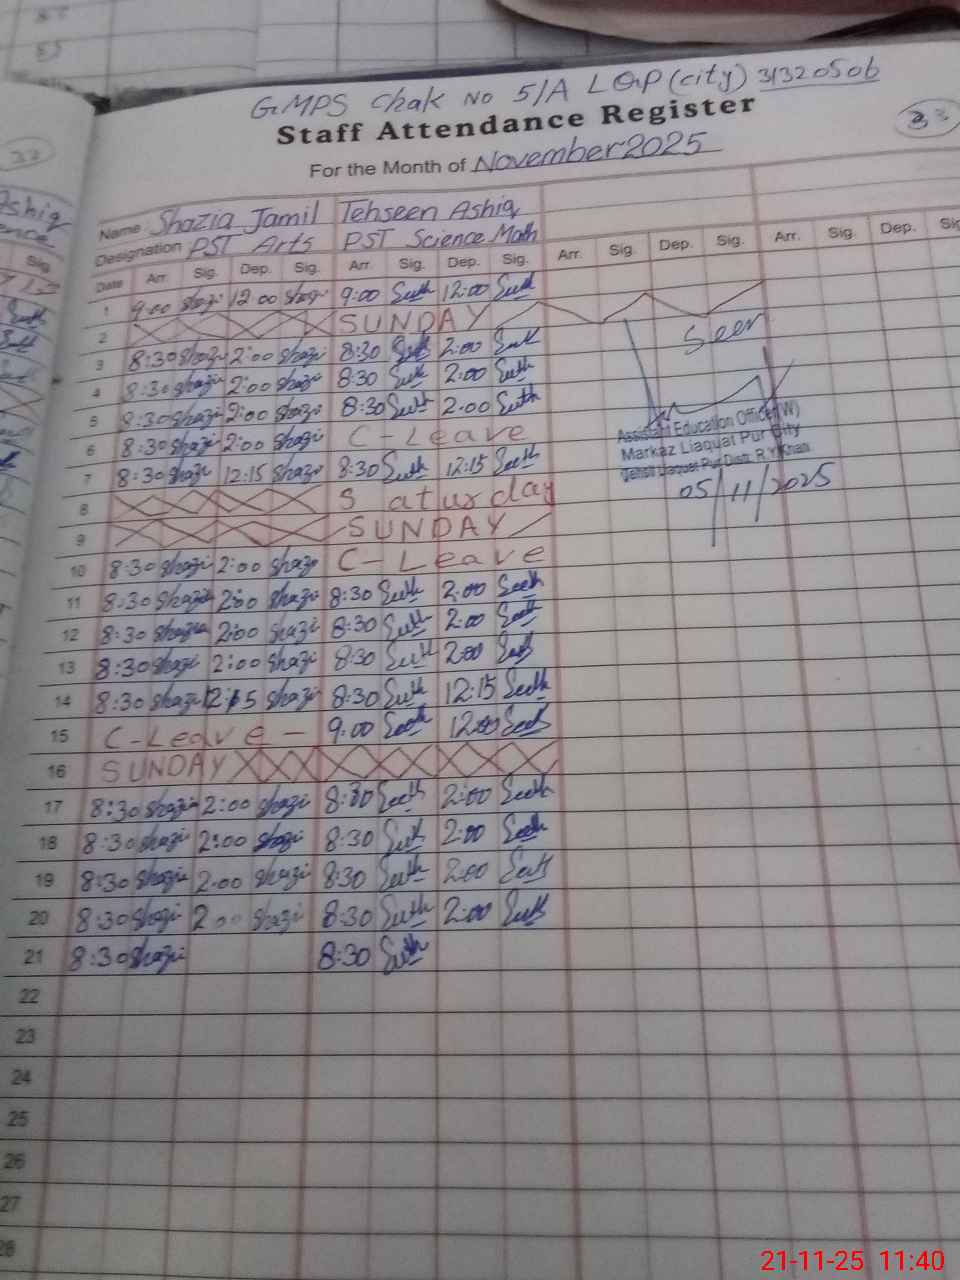 GMPS Chak No 5/A LQP (city) 31320506
Staff Attendance Register
33
For the Month of November 2025
Name Shazia Jamil Tehseen Ashiq
Designation PST Arts PST Science Math
Date Arr. Sig. Dep. Sig. Arr. Sig. Dep. Sig. Arr. Sig. Dep. Sig. Arr. Sig. Dep. Sig.
1 9:00 Shazi 12:00 Shazi 9:00 12:00
2 SUNDAY
3 8:30 Shazi 2:00 Shazi 8:30 2:00
Seen
4 8:30 Shazi 2:00 Shazi 8:30 2:00
5 8:30 Shazi 2:00 Shazi 8:30 2.00
Assistant Education Officer (W)
6 8:30 Shazi 2:00 Shazi C-Leave
Markaz Liaquat Pur City
7 8:30 Shazi 12:15 Shazi 8:30 12:15
Tehsil Liaquat Pur Distt: R.Y.Khan
8 Saturday
05/11/2025
9 SUNDAY
10 8:30 Shazi 2:00 Shazi C-Leave
11 8:30 Shazi 2:00 Shazi 8:30 2:00
12 8:30 Shazia 2:00 Shazi 8:30 2:00
13 8:30 Shazi 2:00 Shazi 8:30 2:00
14 8:30 Shazi 12:15 Shazi 8:30 12:15
15 C-Leave - 9:00 12:00
16 SUNDAY
17 8:30 Shazi 2:00 Shazi 8:30 2:00
18 8:30 Shazi 2:00 Shazi 8:30 2:00
19 8:30 Shazi 2.00 Shazi 8:30 2:00
20 8:30 Shazi 2 00 Shazi 8:30 2:00
21 8:30 Shazi 8:30
22
23
24
25
26
27
28
21-11-25 11:40